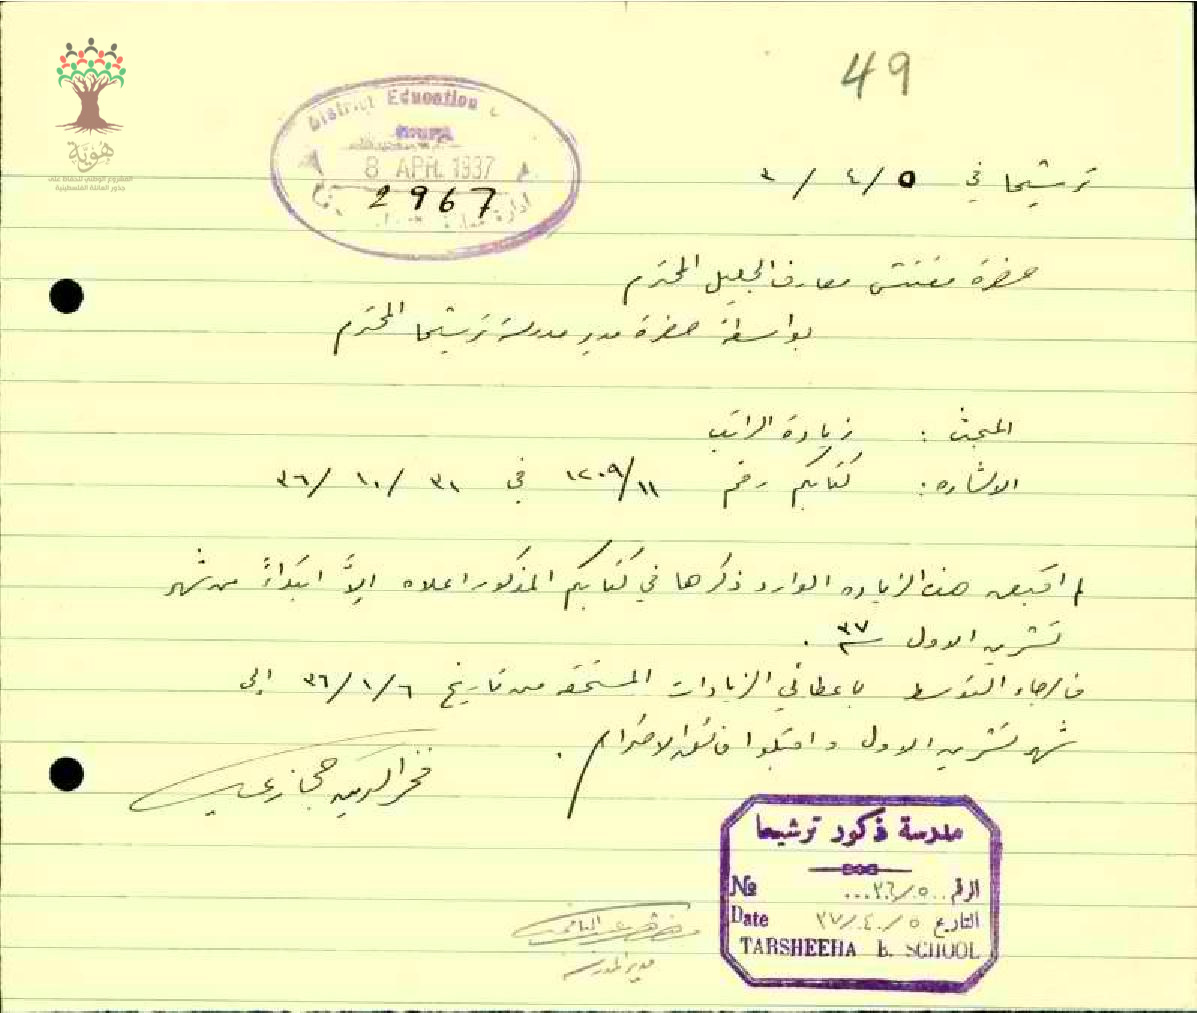 49
هوية
المشروع الوطني للحفاظ على
جذور العائلة الفلسطينية
District Education
8 APR. 1937
2967
ادارة
ترشيحا في ٥/٤/٣
حضرة مفتش معارف الجليل المحترم
بواسطة حضرة مدير مدرسة ترشيحا المحترم
المبحث : زيادة الراتب
الاشاره : كتابكم رقم ١٢٠٩/١١ في ٣١/١٠/٣٦
لم اقبض هذه الزياده الوارد ذكرها في كتابكم المذكور اعلاه الاَّ ابتداءً من شهر
تشرين الاول ٣٧ .
فالرجاء التوسط باعطائي الزيادات المستحقه من تاريخ ٣٦/١/٦ الى
شهر تشرين الاول واقبلوا فائق الاحترام .
فخر الدين حجازي
مدرسة ذكور ترشيحا
№ الرقم ٣٦/٥
Date التاريخ ٣٧/٤/٥
TARSHEEHA B. SCHOOL
مدير المدرسه